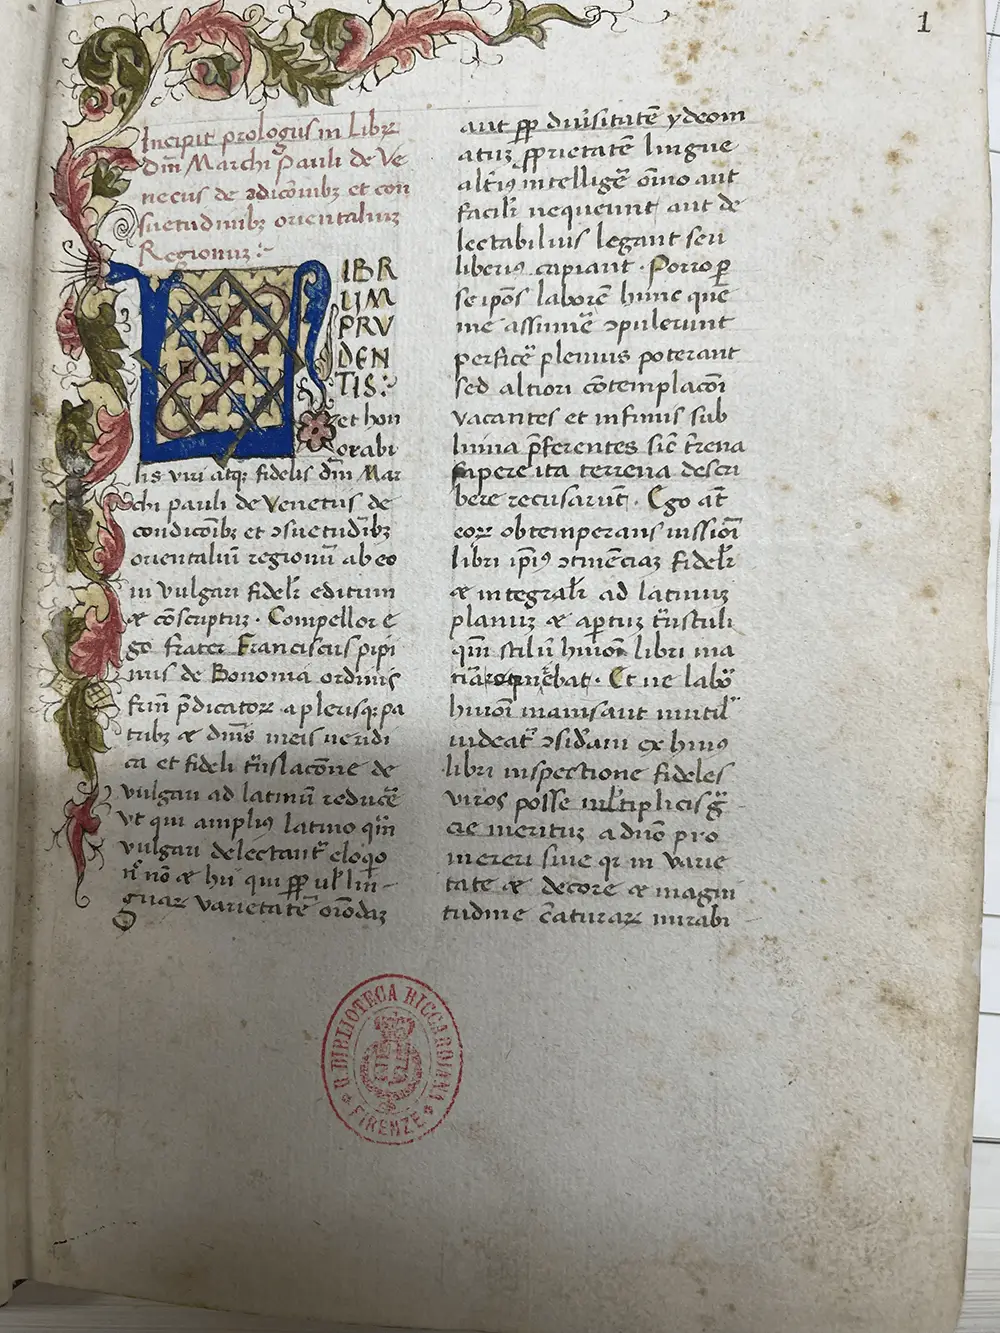 1
Incipit prologus in Libr̅
dn̅i Marchi Pauli de Ve
necus de ↄdicōnibꝫ et con
suetudinibꝫ orientaliuꝫ
Regionuꝫ :~
LIBR
UM
PRU
DEN
TIS:~
et hon
orabi
lis viri atqꝫ fidelis dn̅i Mar
chi pauli de Venetus de
condicōibꝫ et ↄsuetudībꝫ
orientaliū regionū ab eo
in vulgari fidelr̅ editum
⁊ cōscriptuꝫ · Compellor e
go frater Franciscus pipi
nus de Bononia ordinis
frm̅ p̄dicatoꝝ a plerisqꝫ pa
tribꝫ ⁊ dn̅is meis ueridi
ca et fideli trn̅slacōne de
vulgari ad latinū reducē
ut qui ampliꝰ latino qm̅
vulgari delectant᷑ eloqͦo
nͨ nō ⁊ hii qui ꝓp̱ ul̅ lin-
guaꝝ varietatē oīodaꝫ
aut ꝓp̱ diu̓sitatē ydeom
atuꝫ ꝓprietatē lingue
alt̓iꝰ intelligē oīno aut
facilr̅ nequeunt aut de
lectabilius legant seu
liberiꝰ capiant · Porro ꝑ
se ipōs laborē hunc que
me assumē ↄpulerunt
perficē plenius poterant
sed altiori cōtemplacōi
vacantes et infimis sub
limia p̄ferentes sic̄ t̄rena
sapere ita terrena descri
bere recusarūt · Ego at̄
eoꝝ obtemperans iussiōi
libri ip̄iꝰ ↄtinēciaꝫ fidelr̅
⁊ integralr̅ ad latinuꝫ
planuꝫ ⁊ ap̱tuꝫ trn̅stuli
qm̅ stilū huiōi libri ma
tīa requirēbat · Et ne laboͬ
huiōi inanis aut inutil̓
uideat᷑ ↄsid̓ani ex huiꝰ
libri inspectione fideles
viros posse mul̓tiplicis gr̅
cie merituꝫ a dn̅o pro
mereri siue qꝛ in varie
tate ⁊ decore ⁊ magni
tudine c̄aturaꝝ mirabi
R. BIBLIOTECA RICCARDIANA
FIRENZE